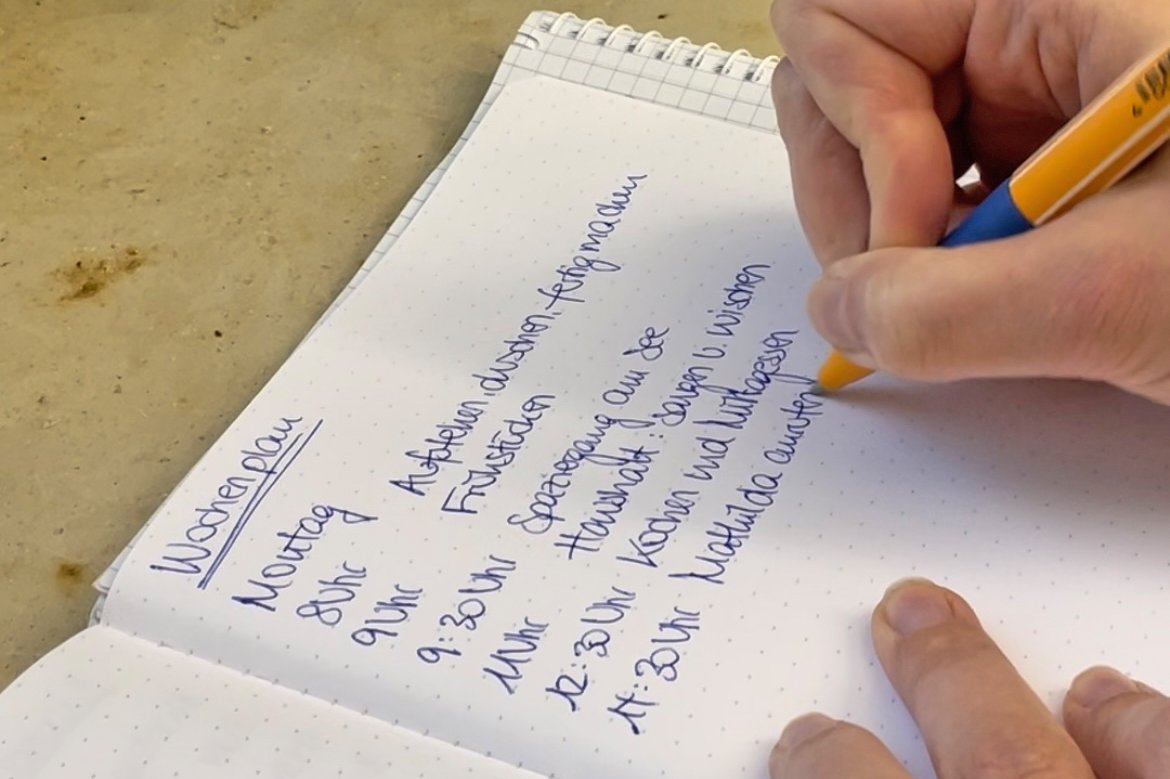 Wochenplan
Montag
8 Uhr Aufstehen, duschen, fertig machen
9 Uhr Frühstücken
9:30 Uhr Spaziergang am See
11 Uhr Haushalt: Saugen u. wischen
12:30 Uhr Kochen und Mittagessen
14:30 Uhr Mathilda